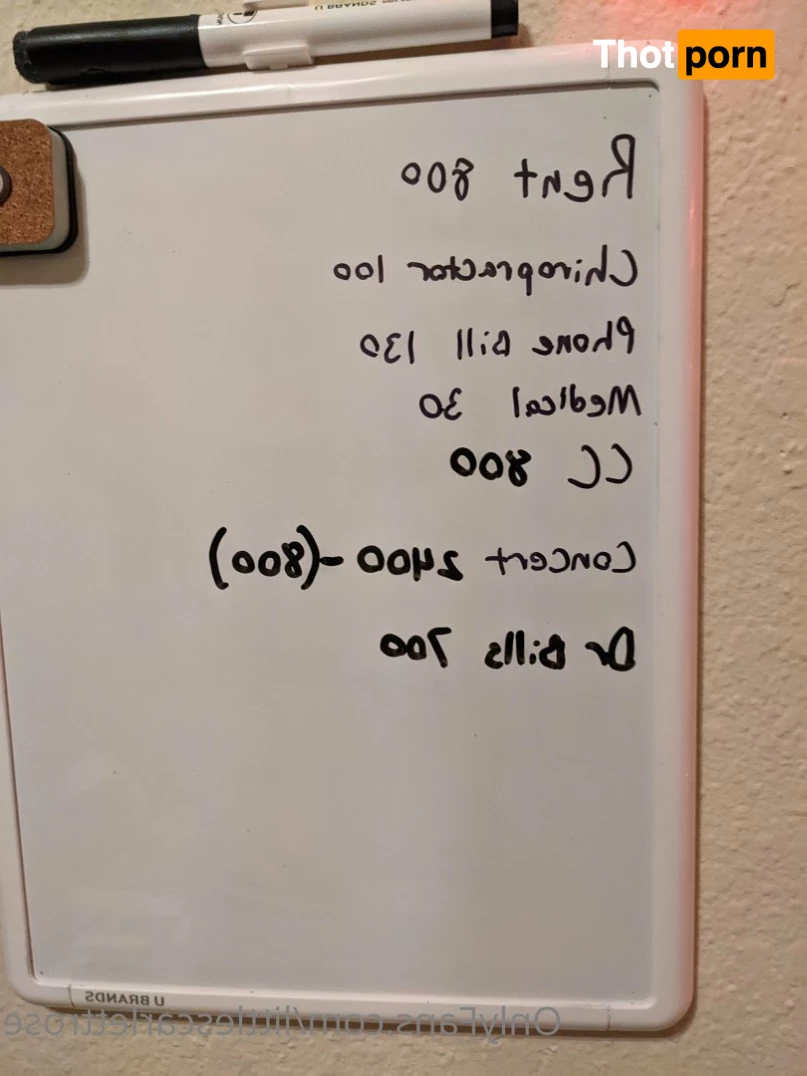 U BRANDS
Thot porn
Rent 800
Chiropractor 100
Phone Bill 130
Medical 30
CC 800
Concert 2400 -(800)
Dr Bills 700
U BRANDS
OnlyFans.com/littlescarlettrose